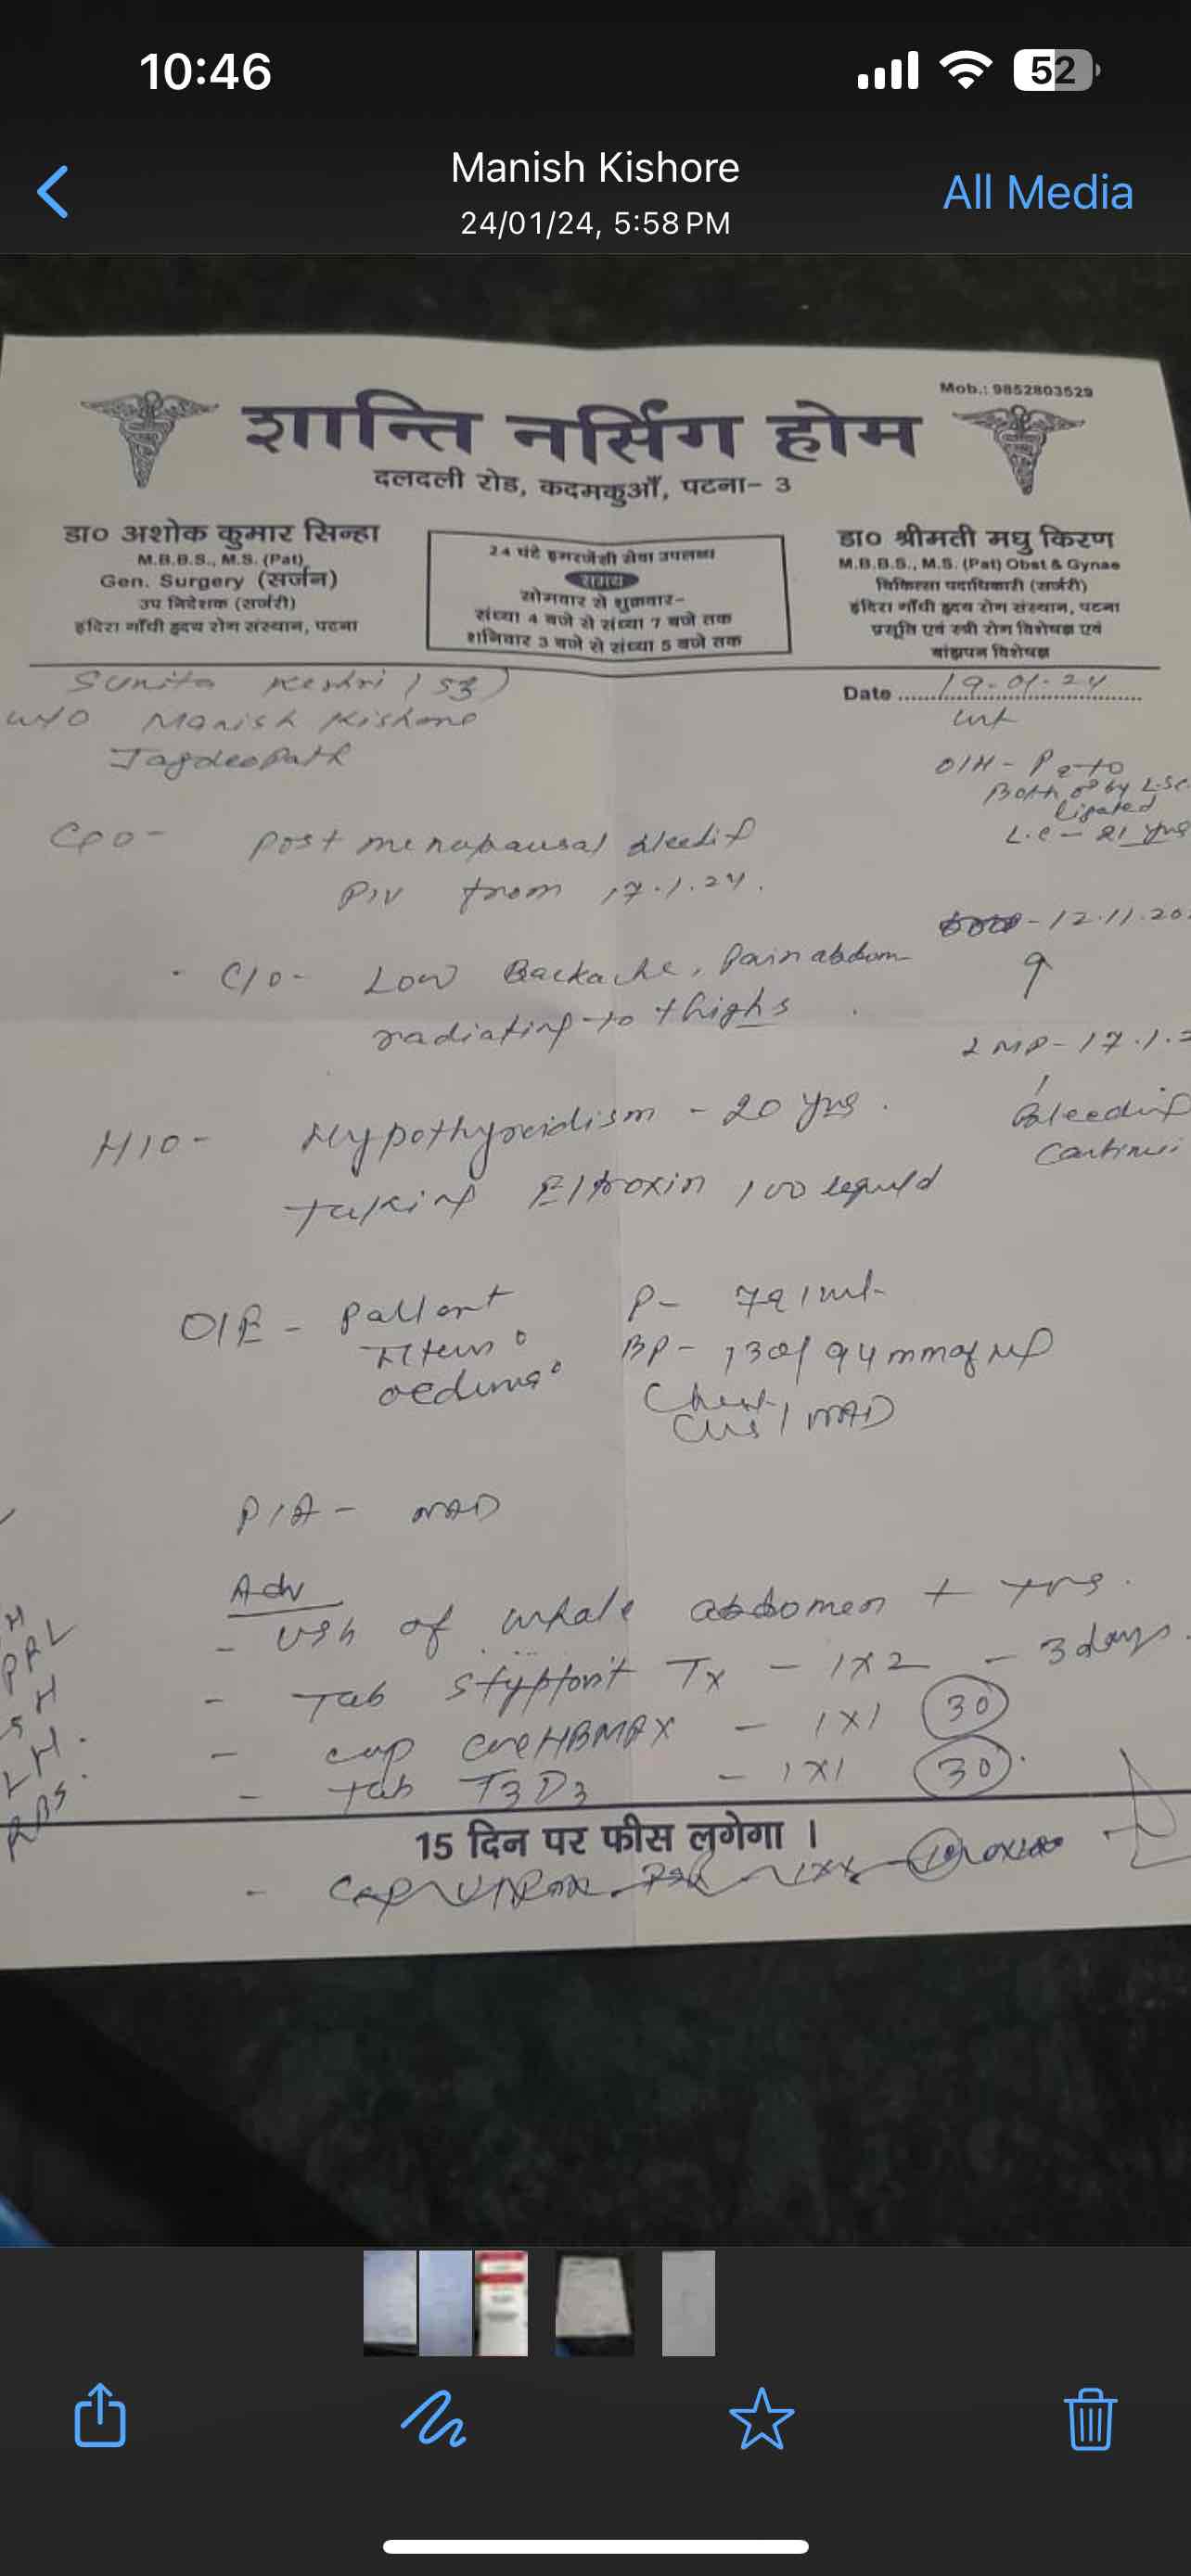 10:46
52
Manish Kishore
24/01/24, 5:58 PM
All Media
Mob.: 9852803529
शान्ति नर्सिंग होम
दलदली रोड, कदमकुआँ, पटना- 3
डा० अशोक कुमार सिन्हा
M.B.B.S., M.S. (Pat)
Gen. Surgery (सर्जन)
उप निदेशक (सर्जरी)
इंदिरा गाँधी हृदय रोग संस्थान, पटना
24 घंटे इमरजेंसी सेवा उपलब्ध
समय
सोमवार से शुक्रवार-
संध्या 4 बजे से संध्या 7 बजे तक
शनिवार 3 बजे से संध्या 5 बजे तक
डा० श्रीमती मधु किरण
M.B.B.S., M.S. (Pat) Obst & Gynae
चिकित्सा पदाधिकारी (सर्जरी)
इंदिरा गाँधी हृदय रोग संस्थान, पटना
प्रसूति एवं स्त्री रोग विशेषज्ञ एवं
बांझपन विशेषज्ञ
Sunita Keshri (53)
Date 19-01-24
W/O Manish Kishore
Jagdeopath
O/H - P2+0
Both by LSC
ligated
L.C - 21 yrs
post menopausal bleeding
P/V from 17.1.24.
12.11.20
C/O - Low Backache, Pain abdom
radiating to thighs
LMP - 17.1.2
Bleeding
H/O - Hypothyroidism - 20 yrs.
taking Eltroxin 100
O/E - Pallor +
P -
oedema °
BP - 130/94 mm of Hg
Chest
CVS / NAD
P/A - NAD
Adv
- USG of whole abdomen + TVS.
- Tab Styptovit Tx - 1x2 - 3 days.
- cap HBMAX - 1x1 (30)
- Tab T3D3 - 1x1 (30).
15 दिन पर फीस लगेगा ।
- Cap